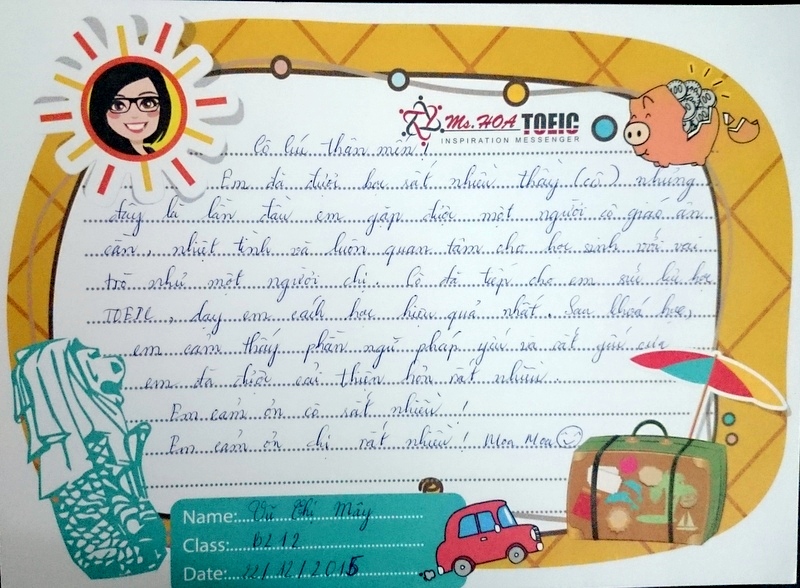 Ms.HOA TOEIC
INSPIRATION MESSENGER
Cô lúi thân mến!
Em đã được học rất nhiều thầy (cô) nhưng
đây là lần đầu em gặp được một người cô giáo ân
cần, nhiệt tình và luôn quan tâm cho học sinh với vai
trò như một người chị. Cô đã tiếp cho em sức lúi học
TOEIC, dạy em cách học hiệu quả nhất. Sau khoá học,
em cảm thấy phần ngữ pháp yếu và rất yếu của
em đã được cải thiện hơn rất nhiều.
Em cảm ơn cô rất nhiều!
Em cảm ơn chị rất nhiều! Moa Moa
Name: Vũ Thị Mây
Class: B212
Date: 22/12/2015